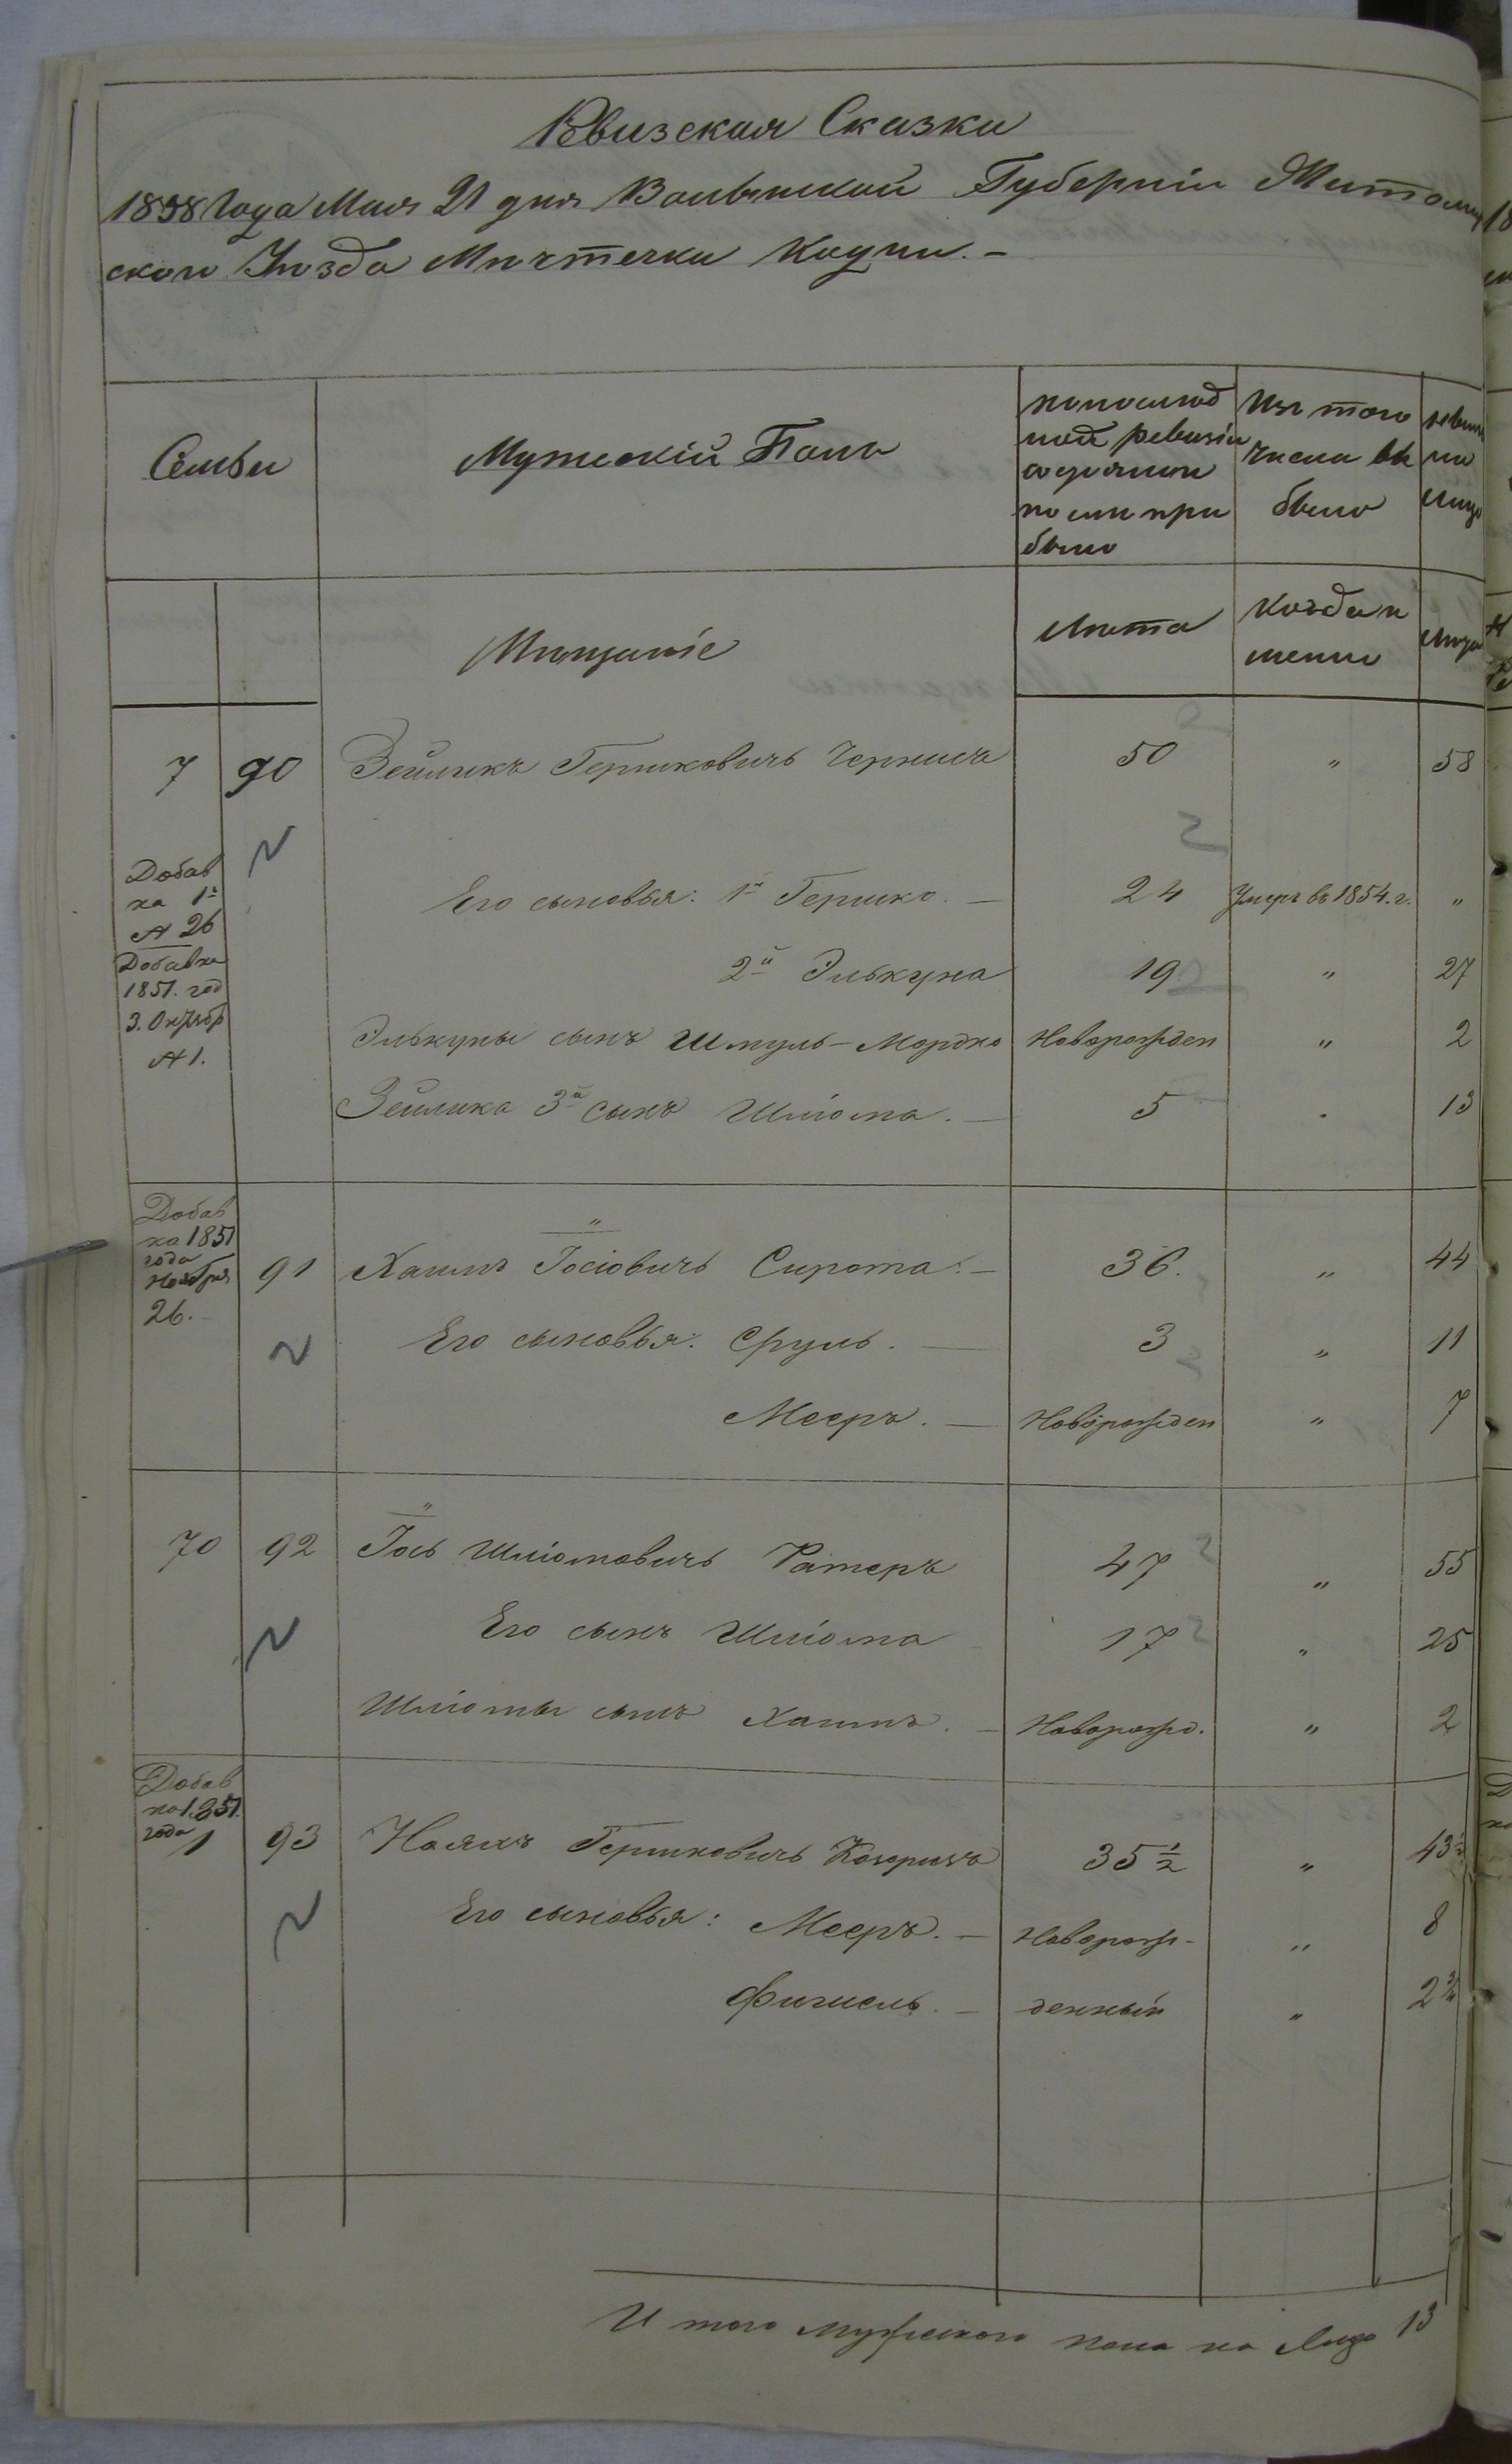 Ревизская Сказка
1858 Года Мая 21 дня Волынской Губерніи Житомир
ского Уезда Мистечка Кодни. –
Семьи
Мужескій Полъ
по послед
ней ревизіи
состояло и
после при
было
Изъ того
числа вы
было
ныне
на
лицо
Мещаніе
Лета
Когда и
менно
Лета
7 90 Зейликъ Гершковичъ 50 „ 58
Добав
ка 1й
№ 26
Его сыновья: 1й Гершко. – 24 Умеръ въ 1854. г. „
Добавка
1851. год
3. Октябр
№ 1.
2й Элькуна 19 „ 27
Элькуны сынъ Шмуль-Мордко Новорожден „ 2
Зейлика 3й сынъ Шліома. – 5 „ 13
Добав
ка 1851
года
Ноября
26.
91 Хаимъ Іосіовичъ Сирота. – 36. „ 44
Его сыновья: Сруль. – 3 „ 11
Мееръ. – Новорожден „ 7
70 92 Іось Шліомовичъ Ратеръ 47 „ 55
Его сынъ Шліома 17 „ 25
Шліомы сынъ Хаимъ. – Новорожд. „ 2
Добав
ка 1851.
года
1 93 Гершковичъ 35 1/2 „ 43 1/2
Его сыновья: Мееръ. – Новорож- „ 8
Фишель. – денный „ 2
И того мужеского пола на Лицо 13